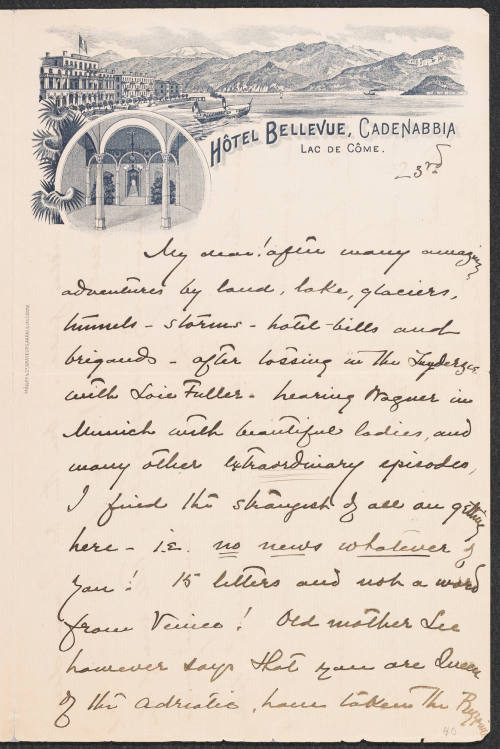 HÔTEL BELLEVUE, CADENABBIA
LAC DE CÔME.
23rd
My dear! after many amazing
adventures by land, lake, glaciers,
tunnels - storms - hotel-bills and
brigands - after tossing in the
with Loie Fuller - hearing Wagner in
Munich with beautiful ladies, and
many other extraordinary episodes,
I find the strangest of all on getting
here - i.e. no news whatever of
you! 15 letters and not a word
from Venice! Old mother Lee
however says that you are Queen
of the Adriatic, have taken the
40